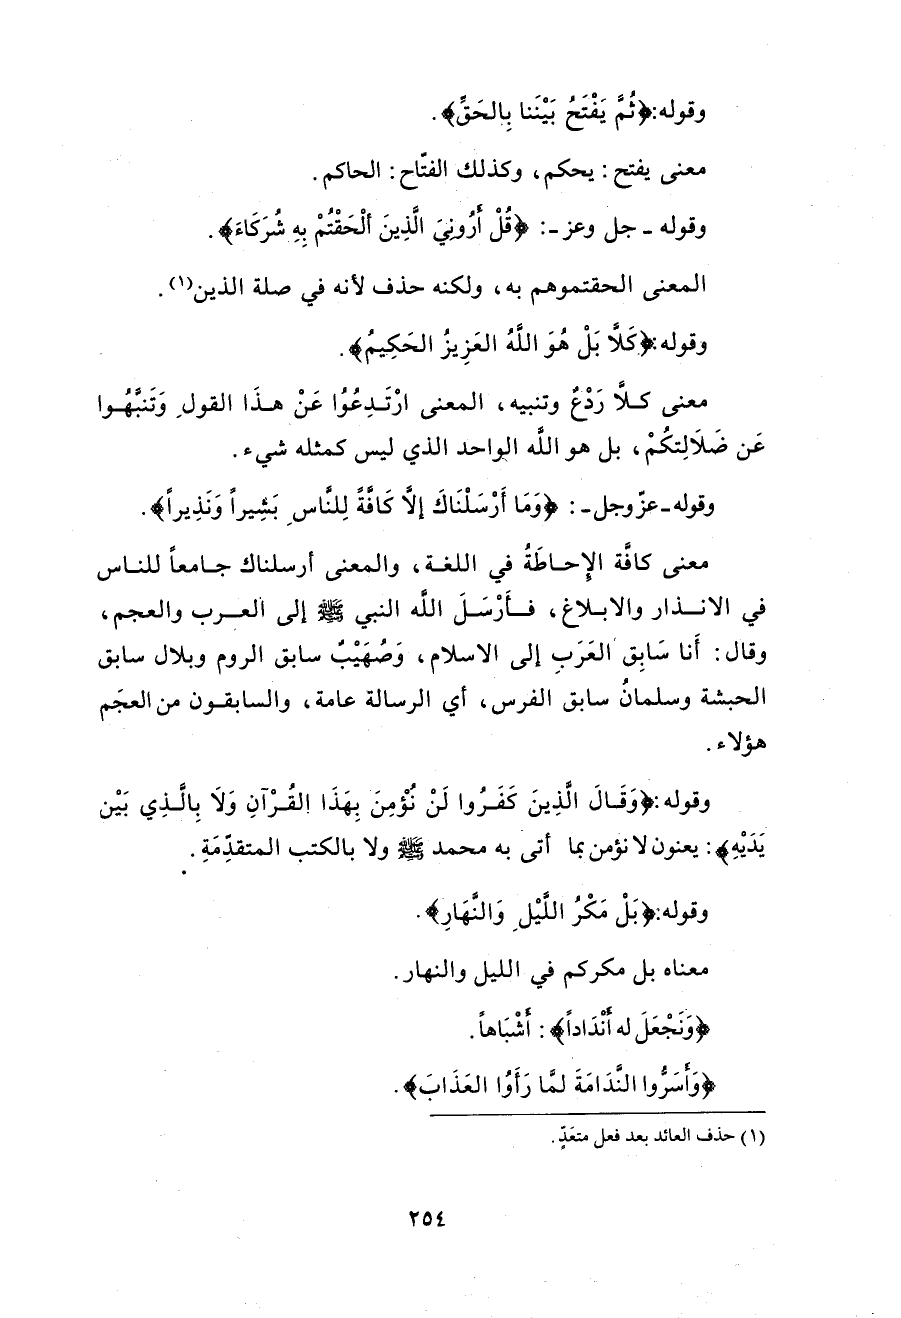 وقوله:﴿ثُمَّ يَفْتَحُ بَيْنَنا بِالحَقِّ﴾.
معنى يفتح : يحكم، وكذلك الفتّاح: الحاكم.
وقوله ـ جل وعز ـ: ﴿قُلْ أَرُونِيَ الَّذِينَ ألْحَقْتُمْ بِهِ شُرَكَاءَ﴾.
المعنى الحقتموهم به، ولكنه حذف لأنه في صلة الذين(١).
وقوله:﴿كَلَّا بَلْ هُوَ اللَّهُ العَزِيزُ الحَكِيمُ﴾.
معنى كلَّا رَدْعٌ وتنبيه، المعنى ارْتَدِعُوا عَنْ هذَا القولِ وَتَنَبَّهُوا
عَن ضَلَالِتكُمْ، بل هو اللَّه الواحد الذي ليس كمثله شيء.
وقوله-عزّوجل-: ﴿وَمَا أَرْسَلْنَاكَ إلَّا كَافَّةً لِلنَّاسِ بَشِيراً وَنَذِيراً﴾.
معنى كافَّة الإِحاطَةُ في اللغة، والمعنى أرسلناك جامعاً للناس
في الانذار والابلاغ، فأَرْسَلَ اللَّه النبي ﷺ إلى العرب والعجم،
وقال: أَنا سَابِق العَرَبِ إلى الاسلام، وَصُهَيْبٌ سابق الروم وبلال سابق
الحبشة وسلمانُ سابق الفرس، أي الرسالة عامة، والسابقون من العجَم
هؤلاء.
وقوله:﴿وَقَالَ الَّذِينَ كَفَرُوا لَنْ نُؤْمِنَ بِهَذَا القُرْآنِ وَلَا بِالَّذِي بَيْن
يَدَيْهِ﴾: يعنون لا نؤمن بما أتى به محمد ﷺ ولا بالكتب المتقدِّمَةِ.
وقوله:﴿بَلْ مَكْرُ اللَّيْلِ وَالنَّهَارِ﴾.
معناه بل مكركم في الليل والنهار.
﴿وَنَجْعَلَ له أَنْدَاداً﴾: أَشْبَاهاً.
﴿وَأَسَرُّوا النَّدَامَةَ لمَّا رَأَوُا العَذَابَ﴾.
(١) حذف العائد بعد فعل متعَدٍّ.
٢٥٤